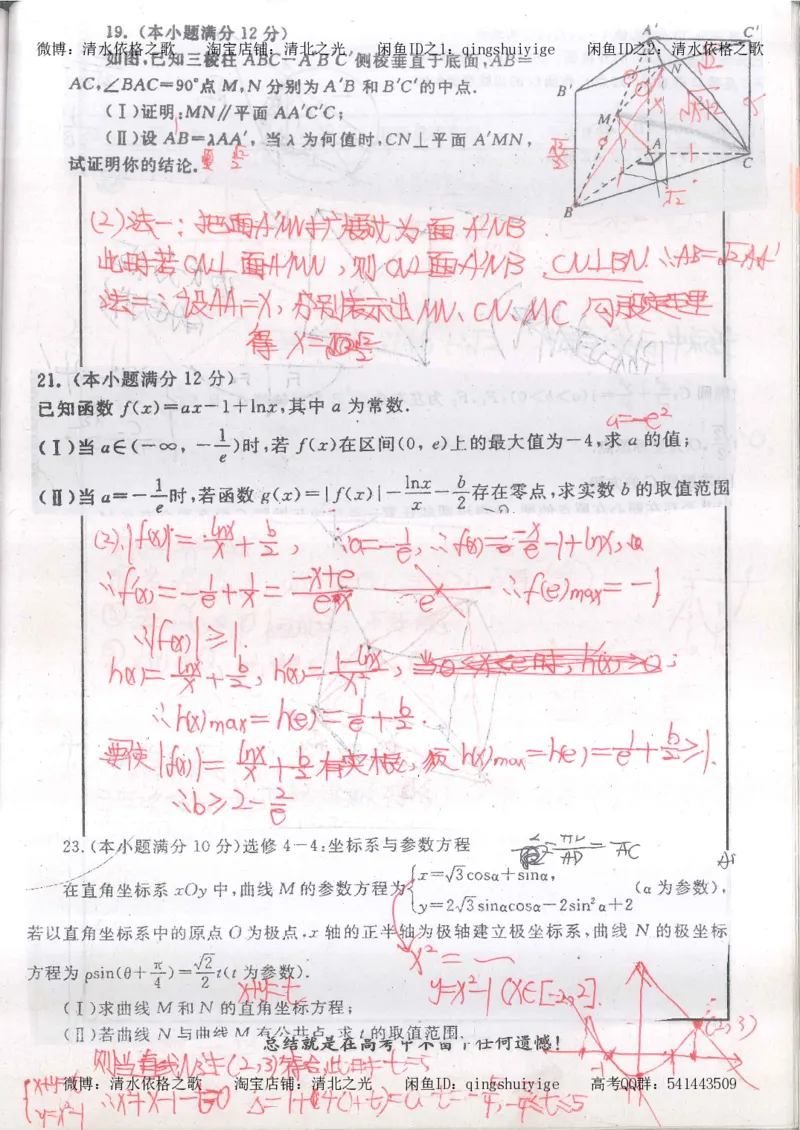 19.(本小题满分12分)
微博：清水依格之歌 淘宝店铺：清北之光 闲鱼ID之1：qingshuiyige 闲鱼ID之2：清水依格之歌
如图,已知三棱柱ABC-A′B′C′侧棱垂直于底面,AB=
AC,∠BAC=90°点M,N分别为A′B和B′C′的中点.
(Ⅰ)证明:MN∥平面AA′C′C;
(Ⅱ)设AB=λAA′,当λ为何值时,CN⊥平面A′MN,
试证明你的结论.
A′ C′
B′ N
M
A
C
B
(2)法一：把面A′MN扩展成为面A′NB
此时若CN⊥面A′MN，则CN⊥面A′NB，CN⊥BN. ∴AB=√2AA′
法二：设AA′=X，分别表示出MN、CN、MC，勾股定理
得 X=
21.(本小题满分12分)
已知函数f(x)=ax-1+lnx,其中a为常数.
a=-e²
(Ⅰ)当a∈(-∞,-1/e)时,若f(x)在区间(0,e)上的最大值为-4,求a的值;
(Ⅱ)当a=-1/e时,若函数g(x)=|f(x)|-lnx/x-b/2存在零点,求实数b的取值范围
(2).|f(x)|=lnx/x+b/2, ∵a=-1/e, ∴f(x)=-x/e-1+lnx,
∴f′(x)=-1/e+1/x=(-x+e)/ex e ∴f(e)max=-1
∴|f(x)|≥1.
h(x)=lnx/x+b/2, h′(x)=(1-lnx)/x²,当0<x<e时,h′(x)>0;
∴h(x)max=h(e)=1/e+b/2.
要使|f(x)|=lnx/x+b/2有实根,须h(x)max=h(e)=1/e+b/2≥1.
∴b≥2-2/e
23.(本小题满分10分)选修4-4:坐标系与参数方程
在直角坐标系xOy中,曲线M的参数方程为{x=√3cosα+sinα, y=2√3sinαcosα-2sin²α+2 (α为参数),
若以直角坐标系中的原点O为极点,x轴的正半轴为极轴建立极坐标系,曲线N的极坐标
方程为ρsin(θ+π/4)=√2/2 t(t为参数).
x+y=t
x²=
y=x²-1(x∈[-2,2].
(Ⅰ)求曲线M和N的直角坐标方程;
(Ⅱ)若曲线N与曲线M有公共点,求t的取值范围.
(2,3)
总结就是在高考中不留下任何遗憾!
则当直线N过(2,3)符合,此时t=5
微博：清水依格之歌 淘宝店铺：清北之光 闲鱼ID：qingshuiyige 高考QQ群：541443509
{x+y=t y=x²-1 ∴x²+x-1-t=0 Δ=1+4(1+t)=0 t=-5/4, -5/4≤t≤5